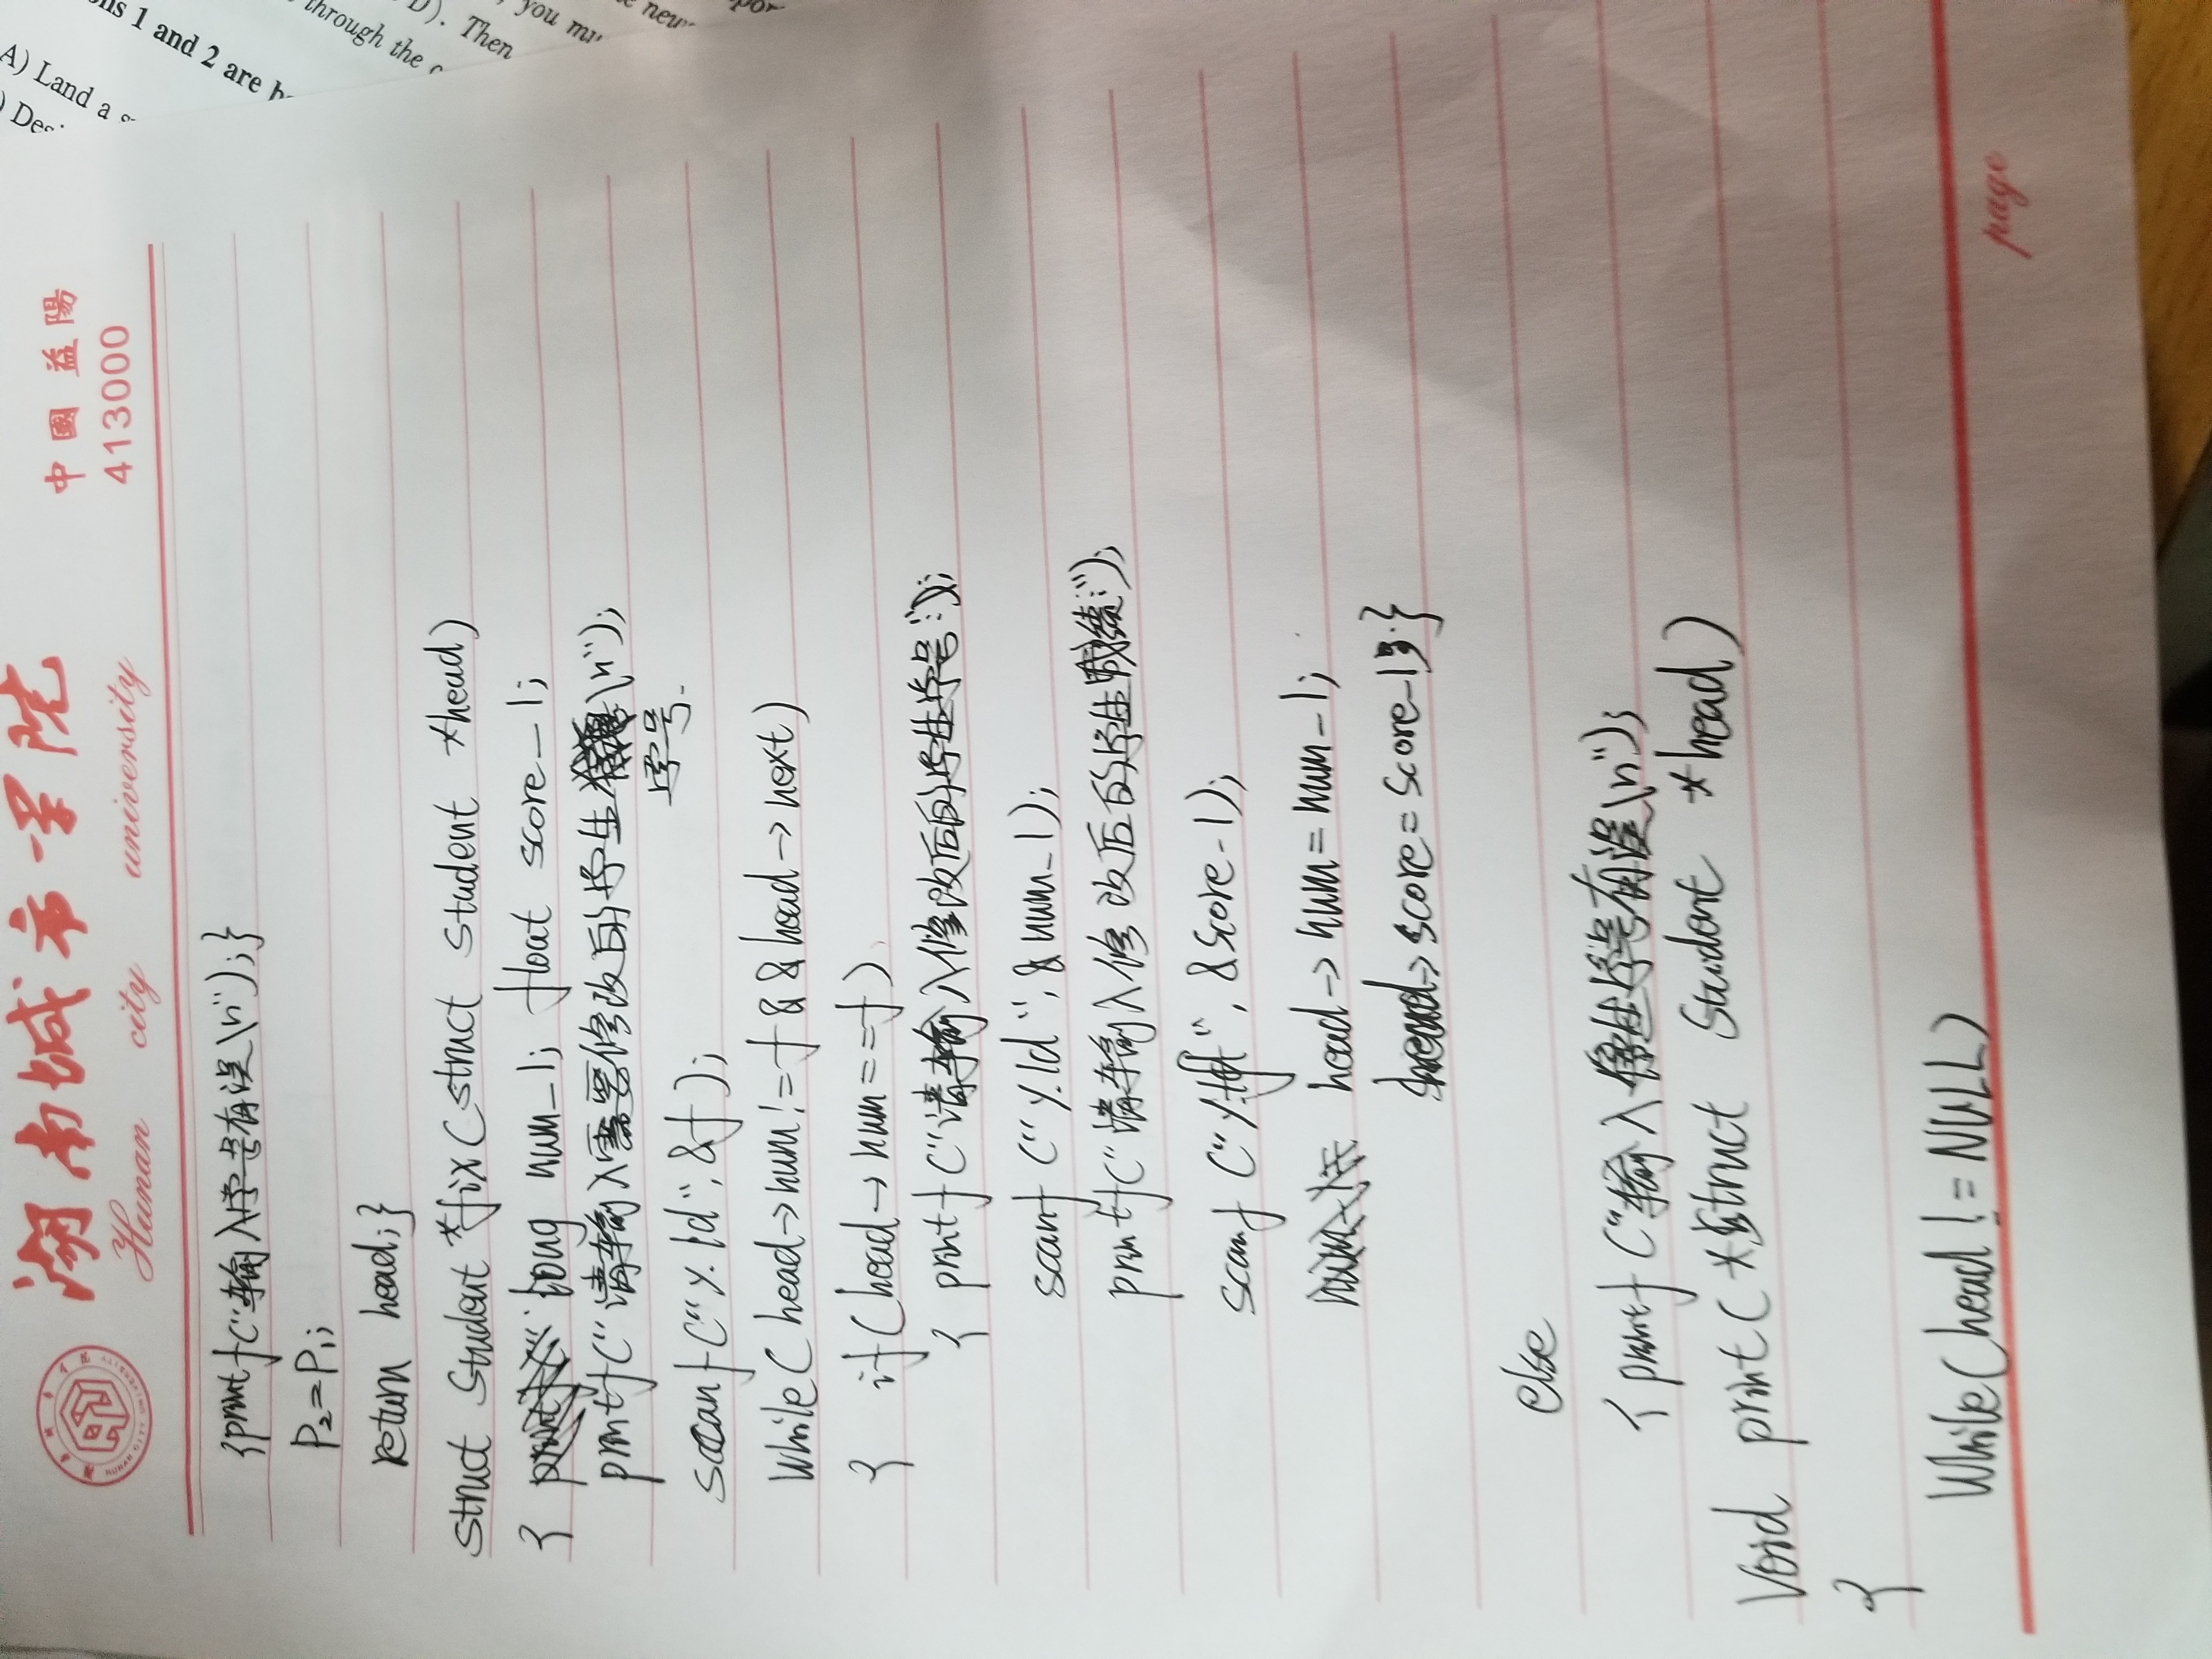 湖南城市学院
Hunan city university
中國 益陽
413000
{printf("输入学号有误\n");}
P2=P1;
return head;}
struct Student *fix(struct student *head)
{ long num_1; float score_1;
printf("请输入需要修改的学生学号\n");
scanf("%ld",&f);
while(head->num!=f&&head->next)
{ if(head->num==f)
{ printf("请输入修改后的学生学号:");
scanf("%ld",&num_1);
printf("请输入修改后的学生成绩:");
scanf("%f",&score_1);
head->num=num_1;
head->score=score_1;}
else
{printf("输入学生学号有误\n");
Void print(*struct Student *head)
{
While(head!=NULL)
page
A) Land a
) Des
ons 1 and 2 are
through the
D). Then
you
new